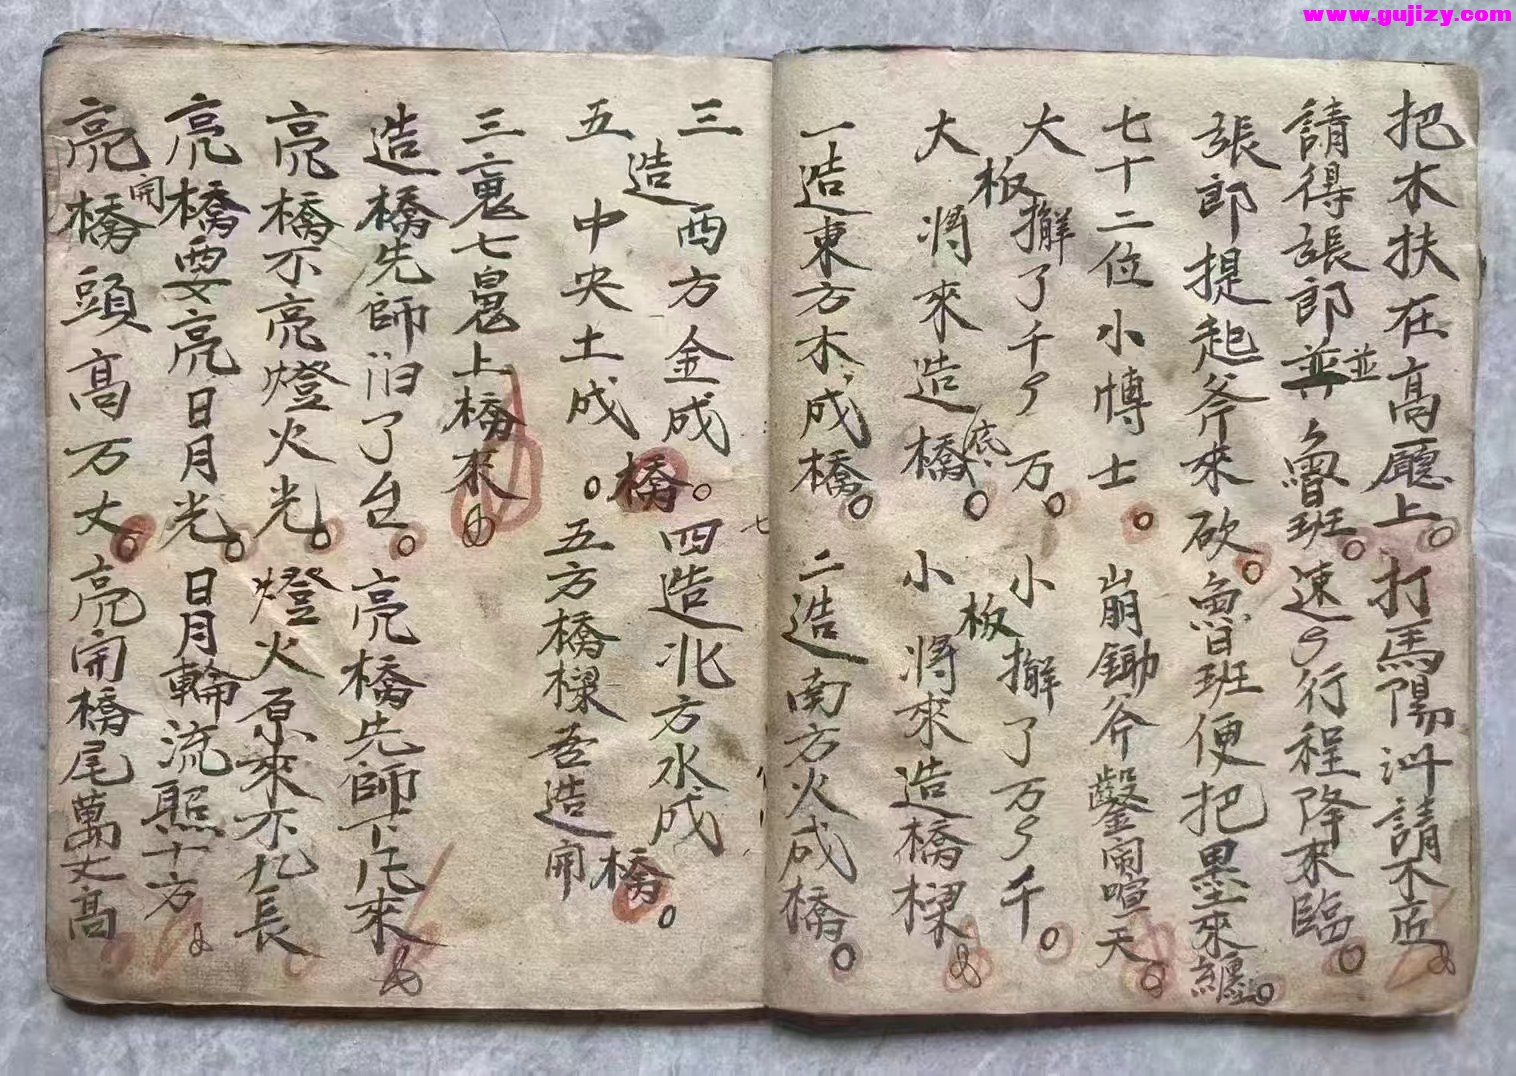 www.gujizy.com
把木扶在高廳上。打馬陽州請木匠
請得張郎並魯班。速々行程降來臨。
張郎提起斧來砍。魯班便把墨來纏。
七十二位小博士。崩鋤斧鑿鬧喧天。
大板擀了千々万。小板擀了万々千。
大板將來造橋底。小板將來造橋樑
一造東方木成橋。二造南方火成橋。
三造西方金成橋。四造北方水成橋。
五造中央土成橋。五方橋樑吾造開。
三魂七魄上橋來
造橋先師泊了台。亮橋先師下凡來
亮橋不亮燈火光。燈火原來不久長
亮橋要亮日月光。日月輪流照十方
亮開橋頭高万丈。亮開橋尾萬丈高
七